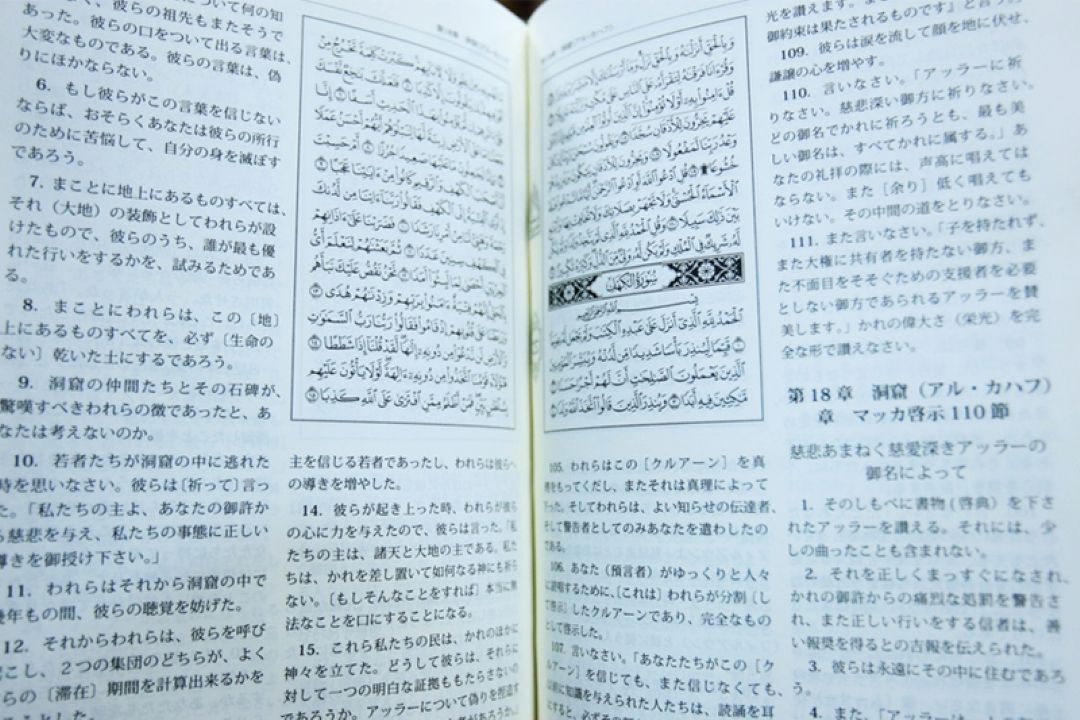 وَبِالْحَقِّ أَنزَلْنَاهُ وَبِالْحَقِّ نَزَلَ وَمَا أَرْسَلْنَاكَ إِلَّا مُبَشِّرًا وَنَذِيرًا
وَقُرْآنًا فَرَقْنَاهُ لِتَقْرَأَهُ عَلَى النَّاسِ عَلَىٰ مُكْثٍ وَنَزَّلْنَاهُ تَنزِيلًا
قُلْ آمِنُوا بِهِ أَوْ لَا تُؤْمِنُوا إِنَّ الَّذِينَ أُوتُوا الْعِلْمَ مِن قَبْلِهِ إِذَا يُتْلَىٰ
عَلَيْهِمْ يَخِرُّونَ لِلْأَذْقَانِ سُجَّدًا
وَعْدُ رَبِّنَا لَمَفْعُولًا وَيَخِرُّونَ لِلْأَذْقَانِ
خُشُوعًا قُلِ ادْعُوا اللَّهَ أَوِ ادْعُوا الرَّحْمَٰنَ
الْأَسْمَاءُ الْحُسْنَىٰ وَلَا تَجْهَرْ بِصَلَاتِكَ وَلَا تُخَافِتْ بِهَا
بَيْنَ ذَٰلِكَ سَبِيلًا وَقُلِ الْحَمْدُ لِلَّهِ
لَّهُ شَرِيكٌ فِي الْمُلْكِ وَلَمْ يَكُن لَّهُ وَلِيٌّ
سُورَةُ الْكَهْفِ
بِسْمِ اللَّهِ الرَّحْمَٰنِ الرَّحِيمِ
الْحَمْدُ لِلَّهِ الَّذِي أَنزَلَ عَلَىٰ عَبْدِهِ الْكِتَابَ وَلَمْ يَجْعَل لَّهُ عِوَجًا
قَيِّمًا لِّيُنذِرَ بَأْسًا شَدِيدًا مِّن لَّدُنْهُ وَيُبَشِّرَ الْمُؤْمِنِينَ
الَّذِينَ يَعْمَلُونَ الصَّالِحَاتِ أَنَّ لَهُمْ أَجْرًا حَسَنًا
مَّاكِثِينَ فِيهِ أَبَدًا وَيُنذِرَ الَّذِينَ قَالُوا اتَّخَذَ اللَّهُ وَلَدًا
105. われらはこの〔クルアーン〕を真
をもってくだし、またそれは真理によって
下った。そしてわれらは、よい知らせの伝達者、
そして警告者としてのみあなたを遣わしたの
である。
106. あなた（預言者）がゆっくりと人々
に読唱するために、〔これは〕われらが分割〔し
て啓示〕したクルアーンであり、完全なもの
として啓示した。
107. 言いなさい。「あなたたちがこの〔ク
ルアーン〕を信じても、また信じなくても、
以前に知識を与えられた人たちは、読誦を耳
にすると、必ずその
光を讃えます。
御約束は果たされるものです』と言う
109. 彼らは涙を流して顔を地に伏せ、
謙譲の心を増やす。
110. 言いなさい。「アッラーに祈
りなさい。慈悲深い御方に祈りなさい。
どの御名でかれに祈ろうとも、最も美
しい御名は、すべてかれに属する。」あ
なたの礼拝の際には、声高に唱えては
ならない。また〔余り〕低く唱えても
いけない。その中間の道をとりなさい。
111. また言いなさい。「子を持たれず、
また大権に共有者を持たない御方、ま
た不面目をそそぐための支援者を必要
としない御方であられるアッラーを賛
美します。」かれの偉大さ（栄光）を完
全な形で讃えなさい。
第18章 洞窟（アル・カハフ）
章 マッカ啓示110節
慈悲あまねく慈愛深きアッラーの
御名によって
1. そのしもべに書物（啓典）を下さ
れたアッラーを讃える。それには、少
しの曲ったことも含まれない。
2. それを正しくまっすぐになされ、
かれの御許からの痛烈な処罰を警告さ
れ、また正しい行いをする信者は、善
い報奨を得るとの吉報を伝えられた。
3. 彼らは永遠にその中に住むであろ
う。
4. また、「アッラーは
ついて何の知
なく、彼らの祖先もまたそうで
あった。彼らの口をついて出る言葉は、
大変なものである。彼らの言葉は、偽
りにほかならない。
6. もし彼らがこの言葉を信じない
ならば、おそらくあなたは彼らの所行
のために苦悩して、自分の身を滅ぼす
であろう。
7. まことに地上にあるものすべては、
それ（大地）の装飾としてわれらが設
けたもので、彼らのうち、誰が最も優
れた行いをするかを、試みるためであ
る。
8. まことにわれらは、この〔地〕
上にあるものすべてを、必ず〔生命の
ない〕乾いた土にするであろう。
9. 洞窟の仲間たちとその石碑が、
驚嘆すべきわれらの徴であったと、あ
なたは考えないのか。
10. 若者たちが洞窟の中に逃れた
時を思いなさい。彼らは〔祈って〕言っ
た。「私たちの主よ、あなたの御許か
ら慈悲を与え、私たちの事態に正しい
導きを御授け下さい。」
11. われらはそれから洞窟の中で
幾年もの間、彼らの聴覚を妨げた。
12. それからわれらは、彼らを呼び
起こし、2つの集団のどちらが、よく
彼らの〔滞在〕期間を計算出来るかを
مَّا لَهُم بِهِ مِنْ عِلْمٍ وَلَا لِآبَائِهِمْ كَبُرَتْ كَلِمَةً تَخْرُجُ مِنْ
أَفْوَاهِهِمْ إِن يَقُولُونَ إِلَّا كَذِبًا فَلَعَلَّكَ بَاخِعٌ نَّفْسَكَ
عَلَىٰ آثَارِهِمْ إِن لَّمْ يُؤْمِنُوا بِهَٰذَا الْحَدِيثِ أَسَفًا إِنَّا
جَعَلْنَا مَا عَلَى الْأَرْضِ زِينَةً لَّهَا لِنَبْلُوَهُمْ أَيُّهُمْ أَحْسَنُ عَمَلًا
وَإِنَّا لَجَاعِلُونَ مَا عَلَيْهَا صَعِيدًا جُرُزًا أَمْ حَسِبْتَ
أَنَّ أَصْحَابَ الْكَهْفِ وَالرَّقِيمِ كَانُوا مِنْ آيَاتِنَا عَجَبًا
إِذْ أَوَى الْفِتْيَةُ إِلَى الْكَهْفِ فَقَالُوا رَبَّنَا آتِنَا مِن لَّدُنكَ
رَحْمَةً وَهَيِّئْ لَنَا مِنْ أَمْرِنَا رَشَدًا فَضَرَبْنَا عَلَىٰ آذَانِهِمْ
فِي الْكَهْفِ سِنِينَ عَدَدًا ثُمَّ بَعَثْنَاهُمْ لِنَعْلَمَ أَيُّ
الْحِزْبَيْنِ أَحْصَىٰ لِمَا لَبِثُوا أَمَدًا نَّحْنُ نَقُصُّ عَلَيْكَ نَبَأَهُم
بِالْحَقِّ إِنَّهُمْ فِتْيَةٌ آمَنُوا بِرَبِّهِمْ وَزِدْنَاهُمْ هُدًى
وَرَبَطْنَا عَلَىٰ قُلُوبِهِمْ إِذْ قَامُوا فَقَالُوا رَبُّنَا رَبُّ السَّمَاوَاتِ
وَالْأَرْضِ لَن نَّدْعُوَ مِن دُونِهِ إِلَٰهًا لَّقَدْ قُلْنَا إِذًا شَطَطًا
هَٰؤُلَاءِ قَوْمُنَا اتَّخَذُوا مِن دُونِهِ آلِهَةً لَّوْلَا يَأْتُونَ عَلَيْهِم
بِسُلْطَانٍ بَيِّنٍ فَمَنْ أَظْلَمُ مِمَّنِ افْتَرَىٰ عَلَى اللَّهِ كَذِبًا
主を信じる若者であったし、われらは彼らへ
の導きを増やした。
14. 彼らが起き上った時、われらが彼ら
の心に力を与えたので、彼らは言った。「私
たちの主は、諸天と大地の主である。私た
ちは、かれを差し置いて如何なる神にも祈ら
ない。〔もしそんなことをすれば〕本当に無
法なことを口にすることになる。
15. これら私たちの民は、かれのほかに
神々を立てた。どうして彼らは、それらに
対して一つの明白な証拠ももたらさないの
であろうか。アッラーについて偽りを捏造す